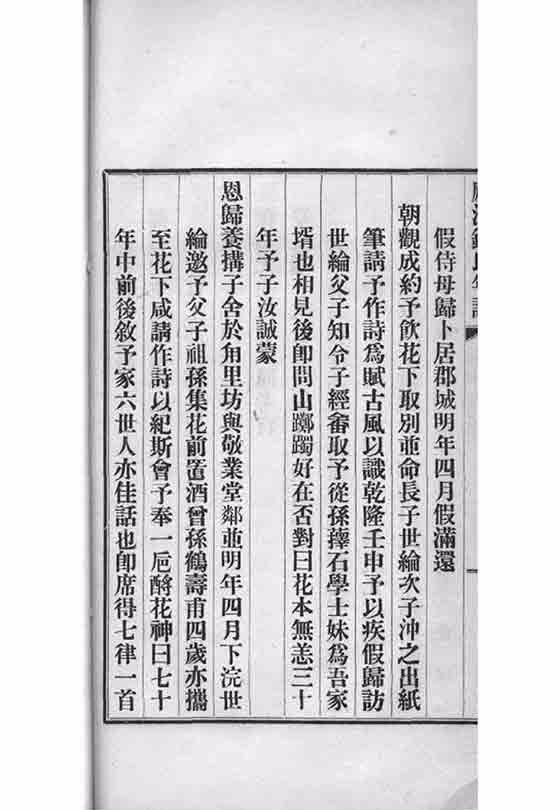 假侍母歸卜居郡城明年四月假滿還
朝觀成約予飲花下取別並命長子世綸次子沖之出紙
筆請予作詩爲賦古風以識乾隆壬申予以疾假歸訪
世綸父子知令子經畬取予從孫蘀石學士妹爲吾家
壻也相見後卽問山躑躅好在否對曰花本無恙三十
年予子汝誠蒙
恩歸養搆子舍於甪里坊與敬業堂鄰並明年四月下浣世
綸邀予父子祖孫集花前置酒曾孫鶴壽甫四歲亦攜
至花下咸請作詩以紀斯會予奉一巵酹花神曰七十
年中前後敘予家六世人亦佳話也卽席得七律一首